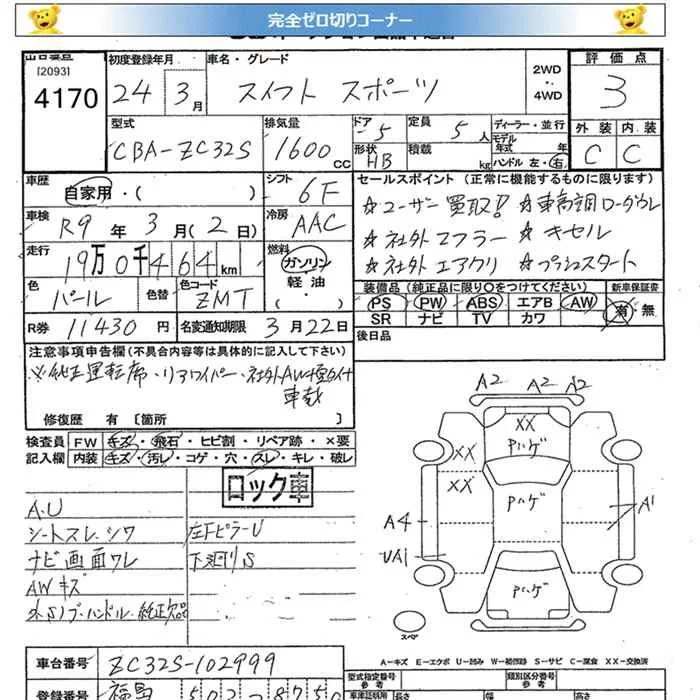 完全ゼロ切りコーナー
[2093]
4170
初度登録年月
24年3月
車名・グレード
スイフト スポーツ
2WD
・・
4WD
評価点
3
型式
CBA-ZC32S
排気量
1600cc
ドア
5
定員
5人
形状
HB
積載
kg
ディーラー・並行
モデル
年式
年
ハンドル 左・右
外装
内装
C
C
車歴
自家用・( )
シフト
6F
車検
R9年3月(2日)
冷房
AAC
走行
19万0千464km
燃料
ガソリン
軽油
( )
色
パール
色替
色コード
ZMT
R券
11430円
名変通知期限
3月22日
セールスポイント (正常に機能するものに限ります)
☆ユーザー買取!! ☆車高調ローダウン
☆社外マフラー ☆キセル
☆社外エアクリ ☆プッシュスタート
装備品 (純正品に限り○をつけてください)
新車保証書
PS PW ABS エアB AW
有・無
SR ナビ TV カワ
後日品
注意事項申告欄(不具合内容等は具体的に記入して下さい)
※純正運転席・リアワイパー・社外AW+夏タイヤ
車載
修復歴 有 [箇所 ]
検査員
記入欄
FW キズ・飛石・ヒビ割・リペア跡・×要
内装 キズ・汚レ・コゲ・穴・スレ・キレ・破レ
ロック車
A.U
シートスレ、シワ
左下ピラーU
ナビ画面ワレ
下廻りS
AWキズ
A2 A2 A2
XX
Pハゲ
XX
XX
Pハゲ
A1
A4
UA1
Pハゲ
スペア
A-キズ E-エクボ U-凹み W-補修跡 S-サビ C-腐食 XX-交換済
車台番号
ZC32S-102999
登録番号
福島 502 8750
型式指定番号
参考
類別区分番号
参考
車庫証明用
長さ
幅
高さ